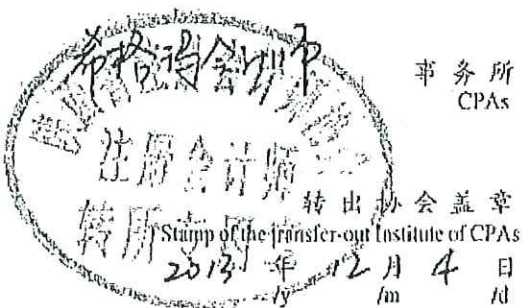 希格玛会计师 事务所
CPAs
注册会计师
转出协会盖章
Stamp of the transfer-out Institute of CPAs
2013年12月4日
/y /m /d